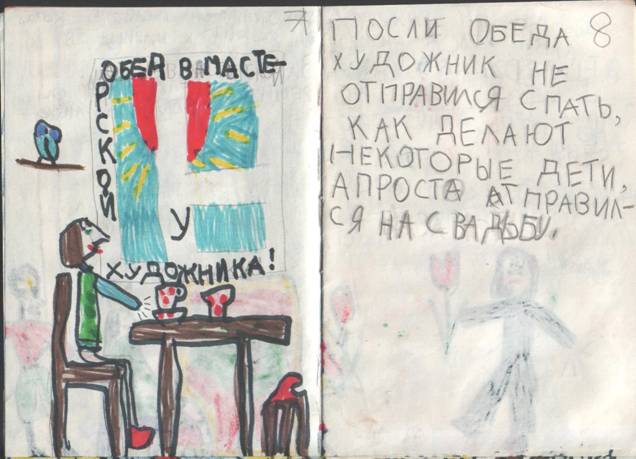 7
ОБЕД В МАСТЕ-
РСКОЙ
У
ХУДОЖНИКА!
8
ПОСЛИ ОБЕДА
ХУДОЖНИК НЕ
ОТПРАВИЛСЯ СПАТЬ,
КАК ДЕЛАЮТ
НЕКОТОРЫЕ ДЕТИ,
А ПРОСТА АТПРАВИЛ-
СЯ НА СВАДЬБУ.